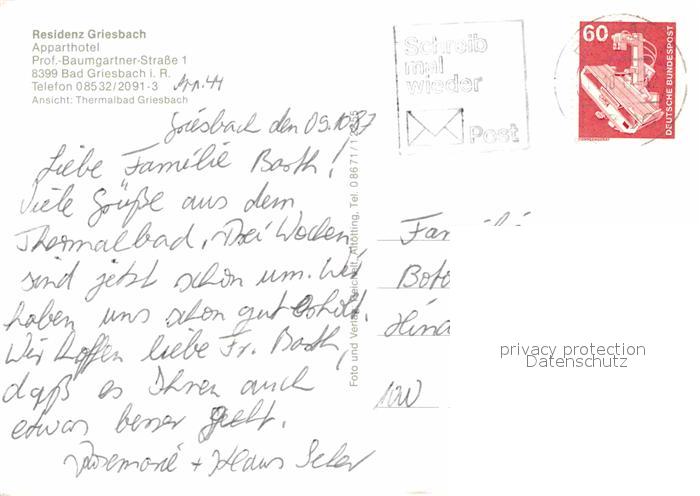 Residenz Griesbach
Apparthotel
Prof.-Baumgartner-Straße 1
8399 Bad Griesbach i. R.
Telefon 08532/2091-3
Ansicht: Thermalbad Griesbach
Griesbach den 09.10.87
Liebe Familie Barth!
Viele Grüße aus dem
Thermalbad. Drei Wochen
sind jetzt schon um. Wir
haben uns schon gut erholt.
Wir hoffen liebe Fr. Barth,
daß es Ihnen auch
etwas besser geht.
Rosemarie + Klaus
Foto und Verlag Reichelt, Altötting, Tel. 08671/1
Schreib
mal
wieder
Post
60
DEUTSCHE BUNDESPOST
Fam
Boto
Hina
privacy protection
Datenschutz